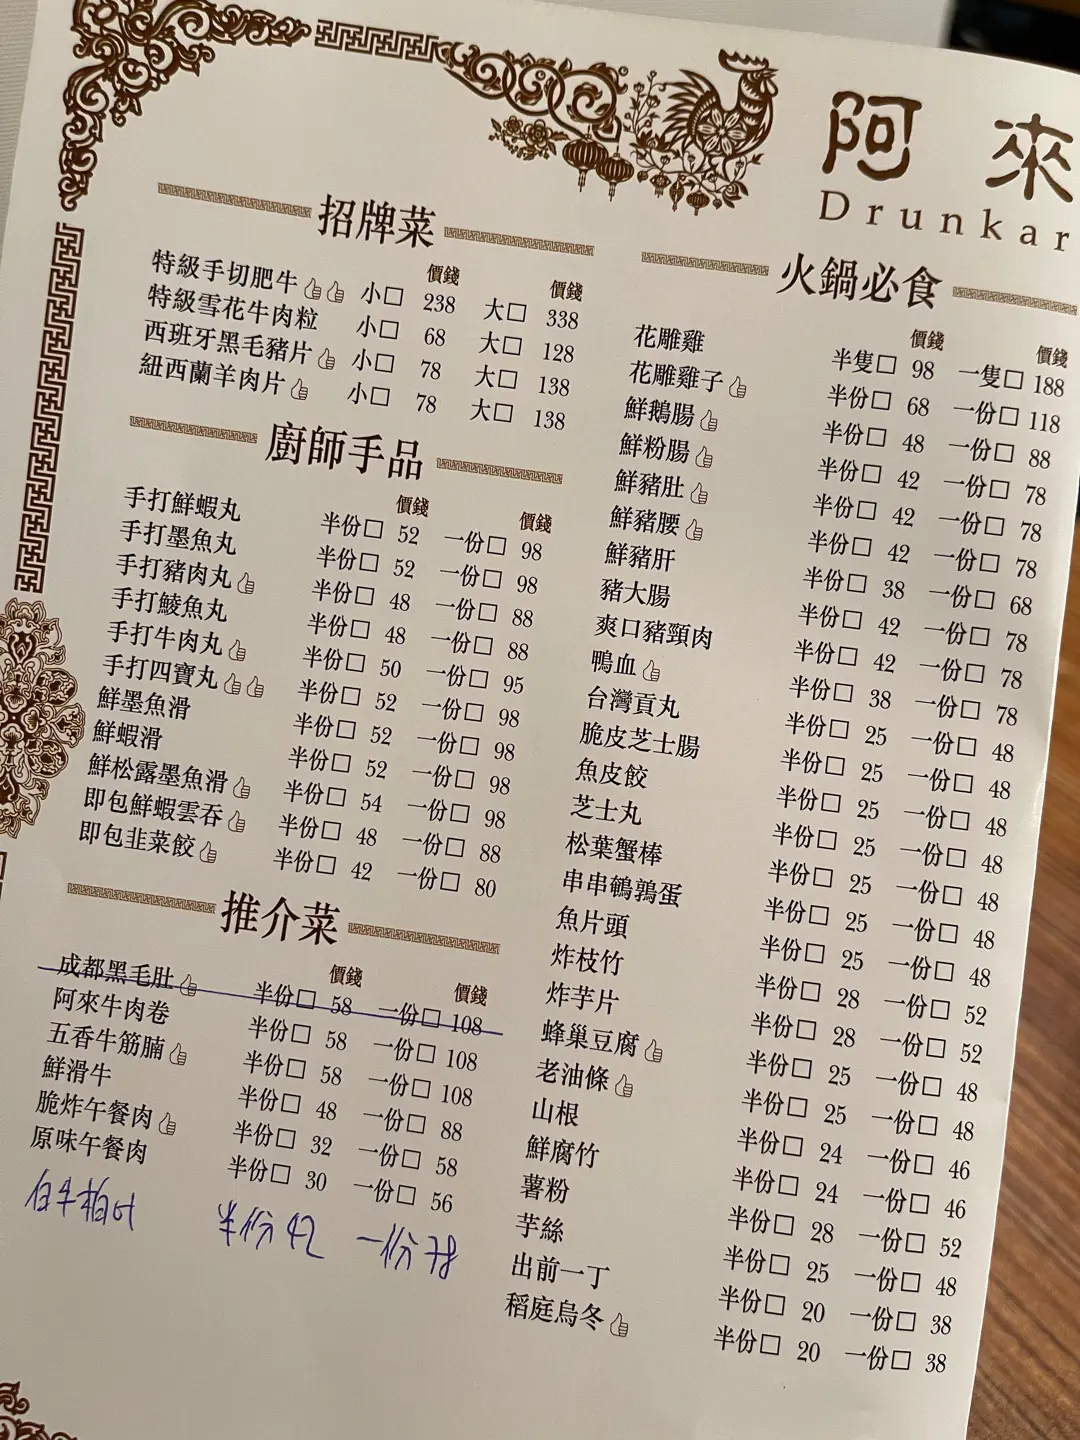 阿來
Drunkar
招牌菜
價錢 價錢
特級手切肥牛 小□ 238 大□ 338
特級雪花牛肉粒 小□ 68 大□ 128
西班牙黑毛豬片 小□ 78 大□ 138
紐西蘭羊肉片 小□ 78 大□ 138
廚師手品
價錢 價錢
手打鮮蝦丸 半份□ 52 一份□ 98
手打墨魚丸 半份□ 52 一份□ 98
手打豬肉丸 半份□ 48 一份□ 88
手打鯪魚丸 半份□ 48 一份□ 88
手打牛肉丸 半份□ 50 一份□ 95
手打四寶丸 半份□ 52 一份□ 98
鮮墨魚滑 半份□ 52 一份□ 98
鮮蝦滑 半份□ 52 一份□ 98
鮮松露墨魚滑 半份□ 54 一份□ 98
即包鮮蝦雲吞 半份□ 48 一份□ 88
即包韭菜餃 半份□ 42 一份□ 80
推介菜
價錢 價錢
成都黑毛肚 半份□ 58 一份□ 108
阿來牛肉卷 半份□ 58 一份□ 108
五香牛筋腩 半份□ 58 一份□ 108
鮮滑牛 半份□ 48 一份□ 88
脆炸午餐肉 半份□ 32 一份□ 58
原味午餐肉 半份□ 30 一份□ 56
白牛柏叶 半份 42 一份 78
火鍋必食
價錢 價錢
花雕雞 半隻□ 98 一隻□ 188
花雕雞子 半份□ 68 一份□ 118
鮮鵝腸 半份□ 48 一份□ 88
鮮粉腸 半份□ 42 一份□ 78
鮮豬肚 半份□ 42 一份□ 78
鮮豬腰 半份□ 42 一份□ 78
鮮豬肝 半份□ 38 一份□ 68
豬大腸 半份□ 42 一份□ 78
爽口豬頸肉 半份□ 42 一份□ 78
鴨血 半份□ 38 一份□ 78
台灣貢丸 半份□ 25 一份□ 48
脆皮芝士腸 半份□ 25 一份□ 48
魚皮餃 半份□ 25 一份□ 48
芝士丸 半份□ 25 一份□ 48
松葉蟹棒 半份□ 25 一份□ 48
串串鵪鶉蛋 半份□ 25 一份□ 48
魚片頭 半份□ 25 一份□ 48
炸枝竹 半份□ 28 一份□ 52
炸芋片 半份□ 28 一份□ 52
蜂巢豆腐 半份□ 25 一份□ 48
老油條 半份□ 25 一份□ 48
山根 半份□ 24 一份□ 46
鮮腐竹 半份□ 24 一份□ 46
薯粉 半份□ 28 一份□ 52
芋絲 半份□ 25 一份□ 48
出前一丁 半份□ 20 一份□ 38
稻庭烏冬 半份□ 20 一份□ 38